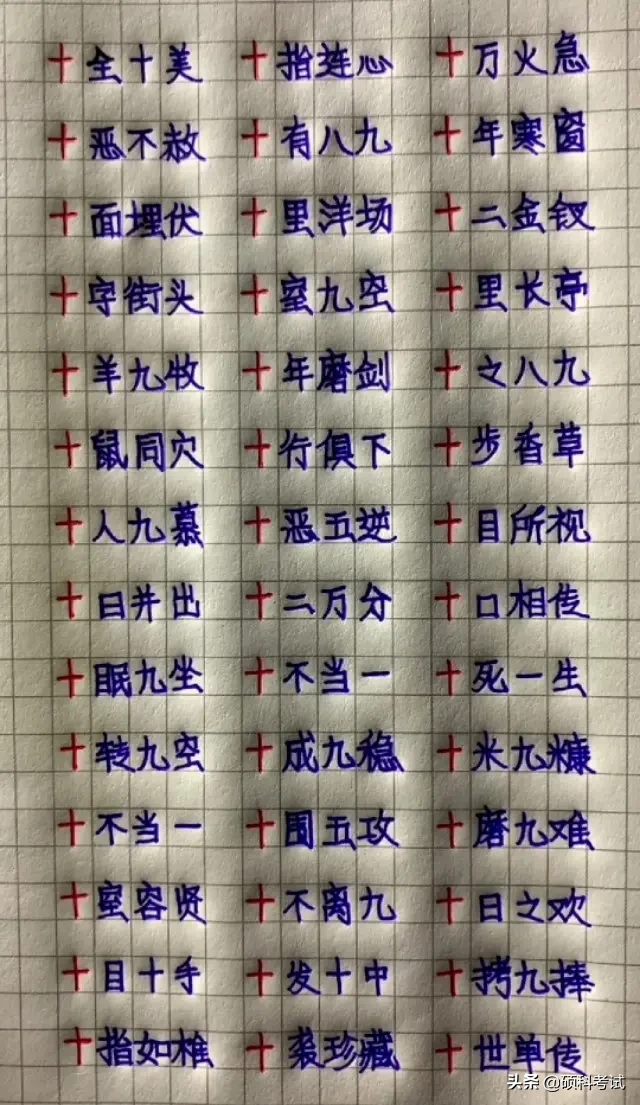 十全十美 十指连心 十万火急
十恶不赦 十有八九 十年寒窗
十面埋伏 十里洋场 十二金钗
十字街头 十室九空 十里长亭
十羊九牧 十年磨剑 十之八九
十鼠同穴 十行俱下 十步香草
十人九慕 十恶五逆 十目所视
十日并出 十二万分 十口相传
十眠九坐 十不当一 十死一生
十转九空 十成九稳 十米九糠
十不当一 十围五攻 十磨九难
十室容贤 十不离九 十日之欢
十目十手 十发十中 十拷九捧
十指如椎 十袭珍藏 十世单传
头条 @硕科考试